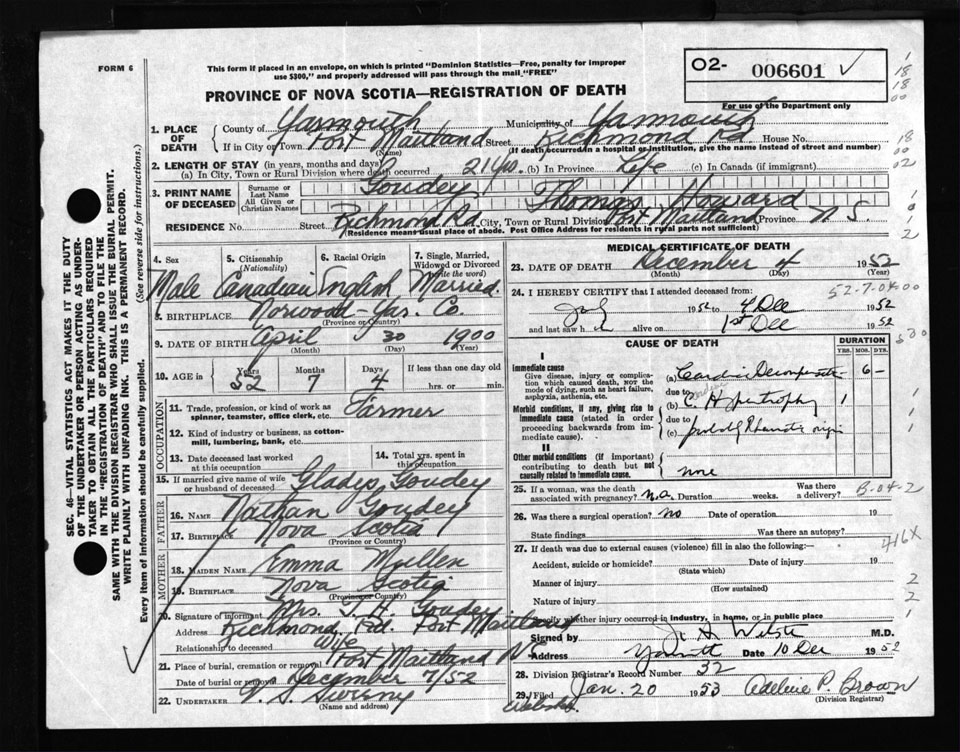 FORM 6
This form if placed in an envelope, on which is printed "Dominion Statistics—Free, penalty for improper
use $300," and properly addressed will pass through the mail "FREE"
O2- 006601
PROVINCE OF NOVA SCOTIA—REGISTRATION OF DEATH
For use of the Department only
1. PLACE OF DEATH
County of Yarmouth Municipality of Yarmouth
If in City or Town Port Maitland (Name) Street Richmond Rd. House No.
(If death occurred in a hospital or institution, give the name instead of street and number)
2. LENGTH OF STAY (in years, months and days)
(a) In City, Town or Rural Division where death occurred 21 yrs. (b) In Province Life (c) In Canada (if immigrant)
3. PRINT NAME OF DECEASED
Surname or Last Name Goudey
All Given or Christian Names Thomas Howard
RESIDENCE No. Street Richmond Rd City, Town or Rural Division Port Maitland Province N.S.
(Residence means usual place of abode. Post Office Address for residents in rural parts not sufficient)
4. Sex Male
5. Citizenship (Nationality) Canadian
6. Racial Origin English
7. Single, Married, Widowed or Divorced (write the word) Married
8. BIRTHPLACE Norwood - Yar. Co.
(Province or Country)
9. DATE OF BIRTH April 30 1900
(Month) (Day) (Year)
10. AGE in Years 52 Months 7 Days 4 If less than one day old
hrs. or min.
OCCUPATION
11. Trade, profession, or kind of work as Farmer
spinner, teamster, office clerk, etc.
12. Kind of industry or business, as cotton-
mill, lumbering, bank, etc.
13. Date deceased last worked
at this occupation
14. Total yrs. spent in
this occupation
15. If married give name of wife
or husband of deceased Gladys Goudey
FATHER
16. NAME Nathan Goudey
17. BIRTHPLACE Nova Scotia
(Province or Country)
MOTHER
18. MAIDEN NAME Emma
19. BIRTHPLACE Nova Scotia
(Province or Country)
20. Signature of informant Mrs. T. H. Goudey
Address Richmond Rd. Port Maitland
Relationship to deceased Wife
21. Place of burial, cremation or removal Port Maitland N.S.
Date of burial or removal December 7/52
22. UNDERTAKER V. S. Sweeny
(Name and address)
MEDICAL CERTIFICATE OF DEATH
23. DATE OF DEATH December 4 1952
(Month) (Day) (Year)
24. I HEREBY CERTIFY that I attended deceased from:
52-7-04-00
July 1952 to 4 Dec 1952
and last saw h alive on 1st Dec 1952
CAUSE OF DEATH
DURATION
YRS. MOS. DYS.
I
Immediate cause
Give disease, injury or complication which caused death, NOT the mode of dying, such as heart failure, asphyxia, asthenia, etc.
(a) Cardiac Decompensation - 6 -
due to
Morbid conditions, if any, giving rise to immediate cause (stated in order proceeding backwards from immediate cause).
(b) C. Hypertrophy 1
due to
(c)
II
Other morbid conditions (if important) contributing to death but not causally related to immediate cause.
none
25. If a woman, was the death
associated with pregnancy? n.a. Duration weeks. Was there a delivery?
B-04-2
26. Was there a surgical operation? no Date of operation 19
State findings Was there an autopsy?
416X
27. If death was due to external causes (violence) fill in also the following:—
Accident, suicide or homicide? Date of injury 19
(State which)
Manner of injury
(How sustained)
Nature of injury
Specify whether injury occurred in industry, in home, or in public place
Signed by M.D.
Address Date 10 Dec 1952
28. Division Registrar's Record Number 32
29. Filed Jan. 20 1953 Adelaide P. Brown
(Division Registrar)
SEC. 46—VITAL STATISTICS ACT MAKES IT THE DUTY
OF THE UNDERTAKER OR PERSON ACTING AS UNDER-
TAKER TO OBTAIN ALL THE PARTICULARS REQUIRED
IN THE "REGISTRATION OF DEATH" AND TO FILE THE
SAME WITH THE DIVISION REGISTRAR WHO SHALL ISSUE THE BURIAL PERMIT.
WRITE PLAINLY WITH UNFADING INK. THIS IS A PERMANENT RECORD.
Every item of information should be carefully supplied. (See reverse side for instructions.)